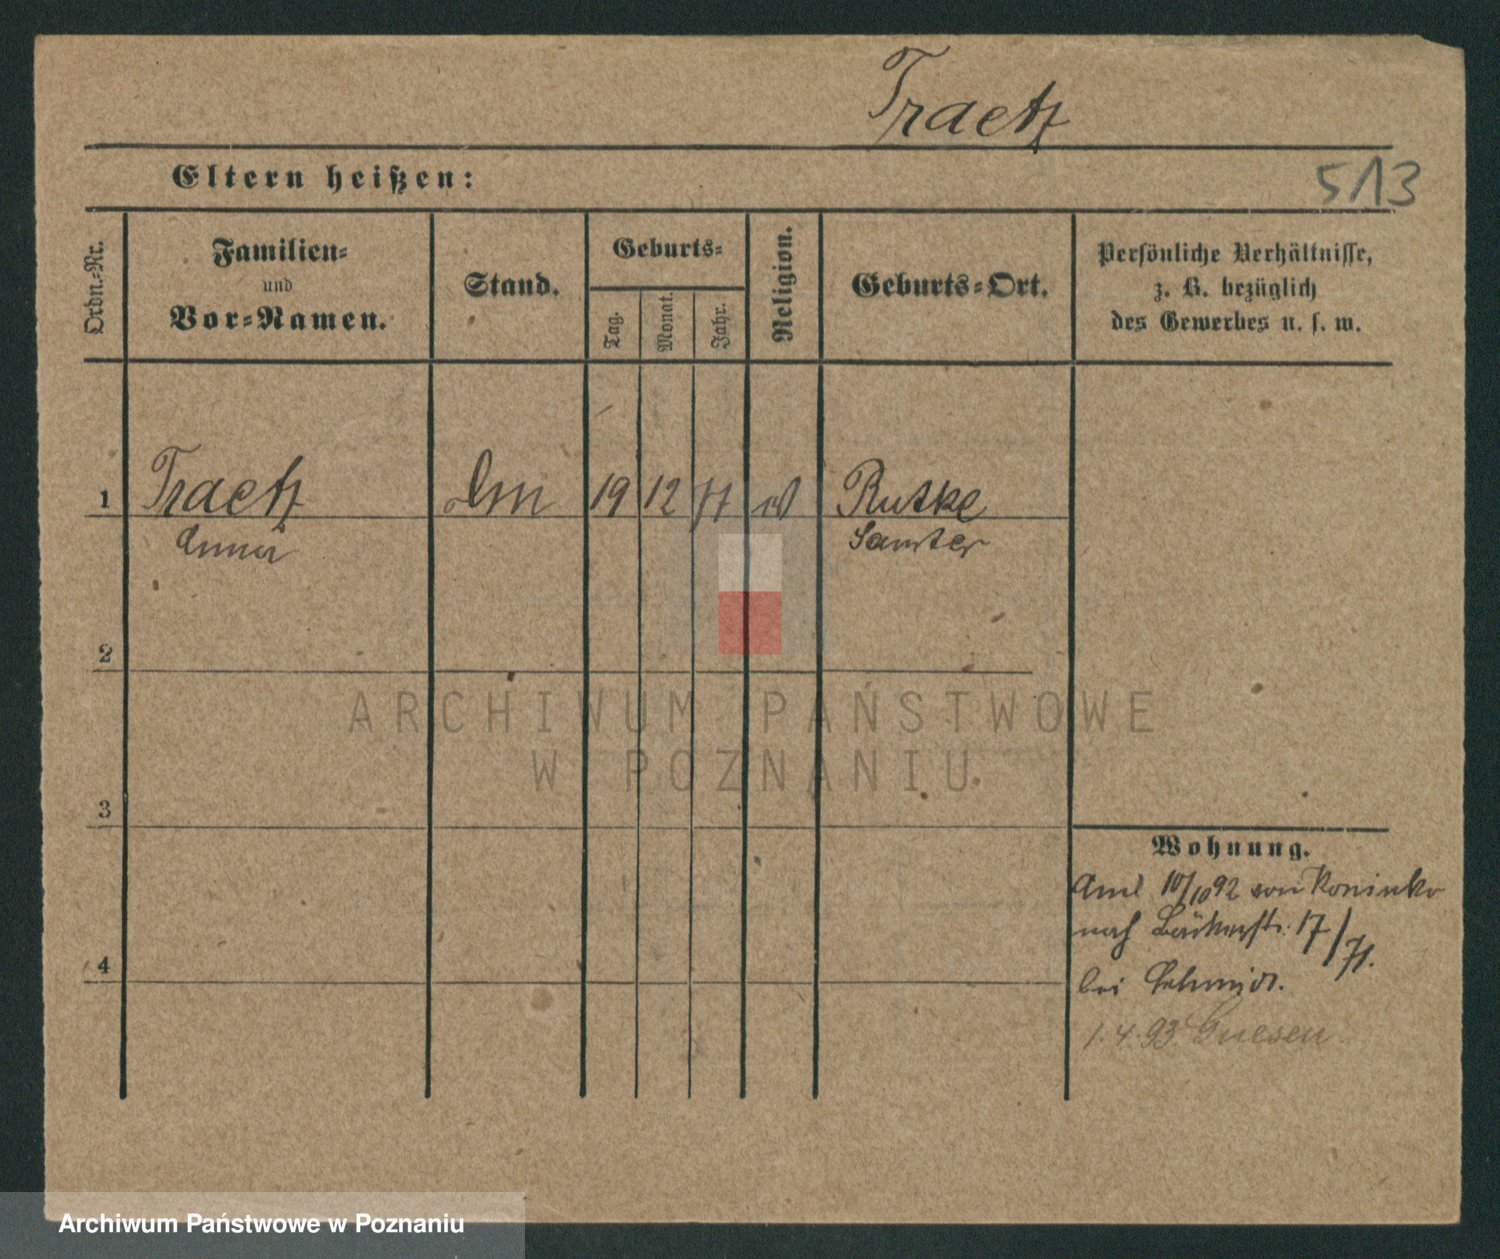 Traetz
Eltern heißen:
513
Ordn.-Nr.
Familien-
und
Vor-Namen.
Stand.
Geburts-
Tag.
Monat.
Jahr.
Religion.
Geburts-Ort.
Persönliche Verhältnisse,
z. B. bezüglich
des Gewerbes u. s. w.
1 Traetz 19 12 77 Rutke
Anna Samter
2
3
4
Wohnung.
10/10 92 von Koninko
nach Bäckerstr. 17/71.
bei Schmidt.
1.4.93. Gnesen
ARCHIWUM PAŃSTWOWE
W POZNANIU
Archiwum Państwowe w Poznaniu